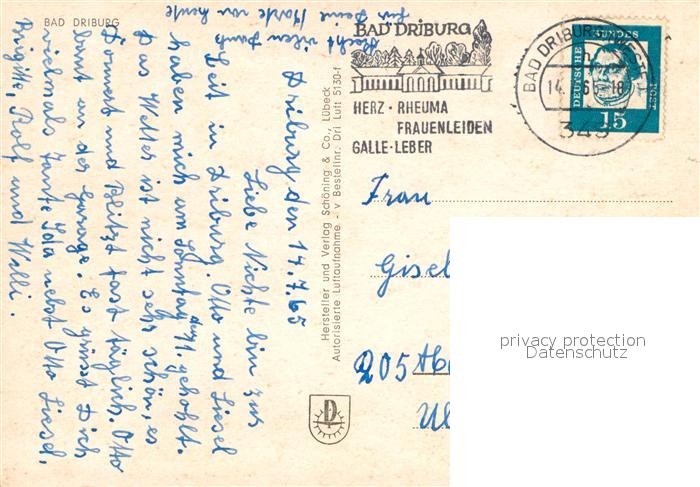 BAD DRIBURG
Driburg den 14.7.65
Liebe Nichte bin zur
Zeit in Driburg. Otto und Liesel
haben mich am Sonntag abgehohlt.
Das Wetter ist nicht sehr schön, es
Donnert und Blitzt fast täglich. Otto
baut an der Garage. Es grüsst Dich
vielmals Tante Ida nebst Otto Liesel,
Brigitte, Rolf und Willi.
Recht vilen Dank
für Deine Karte von heute
Hersteller und Verlag Schöning & Co., Lübeck
Autorisierte Luftaufnahme - v Bestellnr. Dri Luft 5130-f
BAD DRIBURG
HERZ · RHEUMA
FRAUENLEIDEN
GALLE · LEBER
BAD DRIBURG
14.
349
DEUTSCHE BUNDESPOST
15
Frau
Gisel
205
privacy protection
Datenschutz